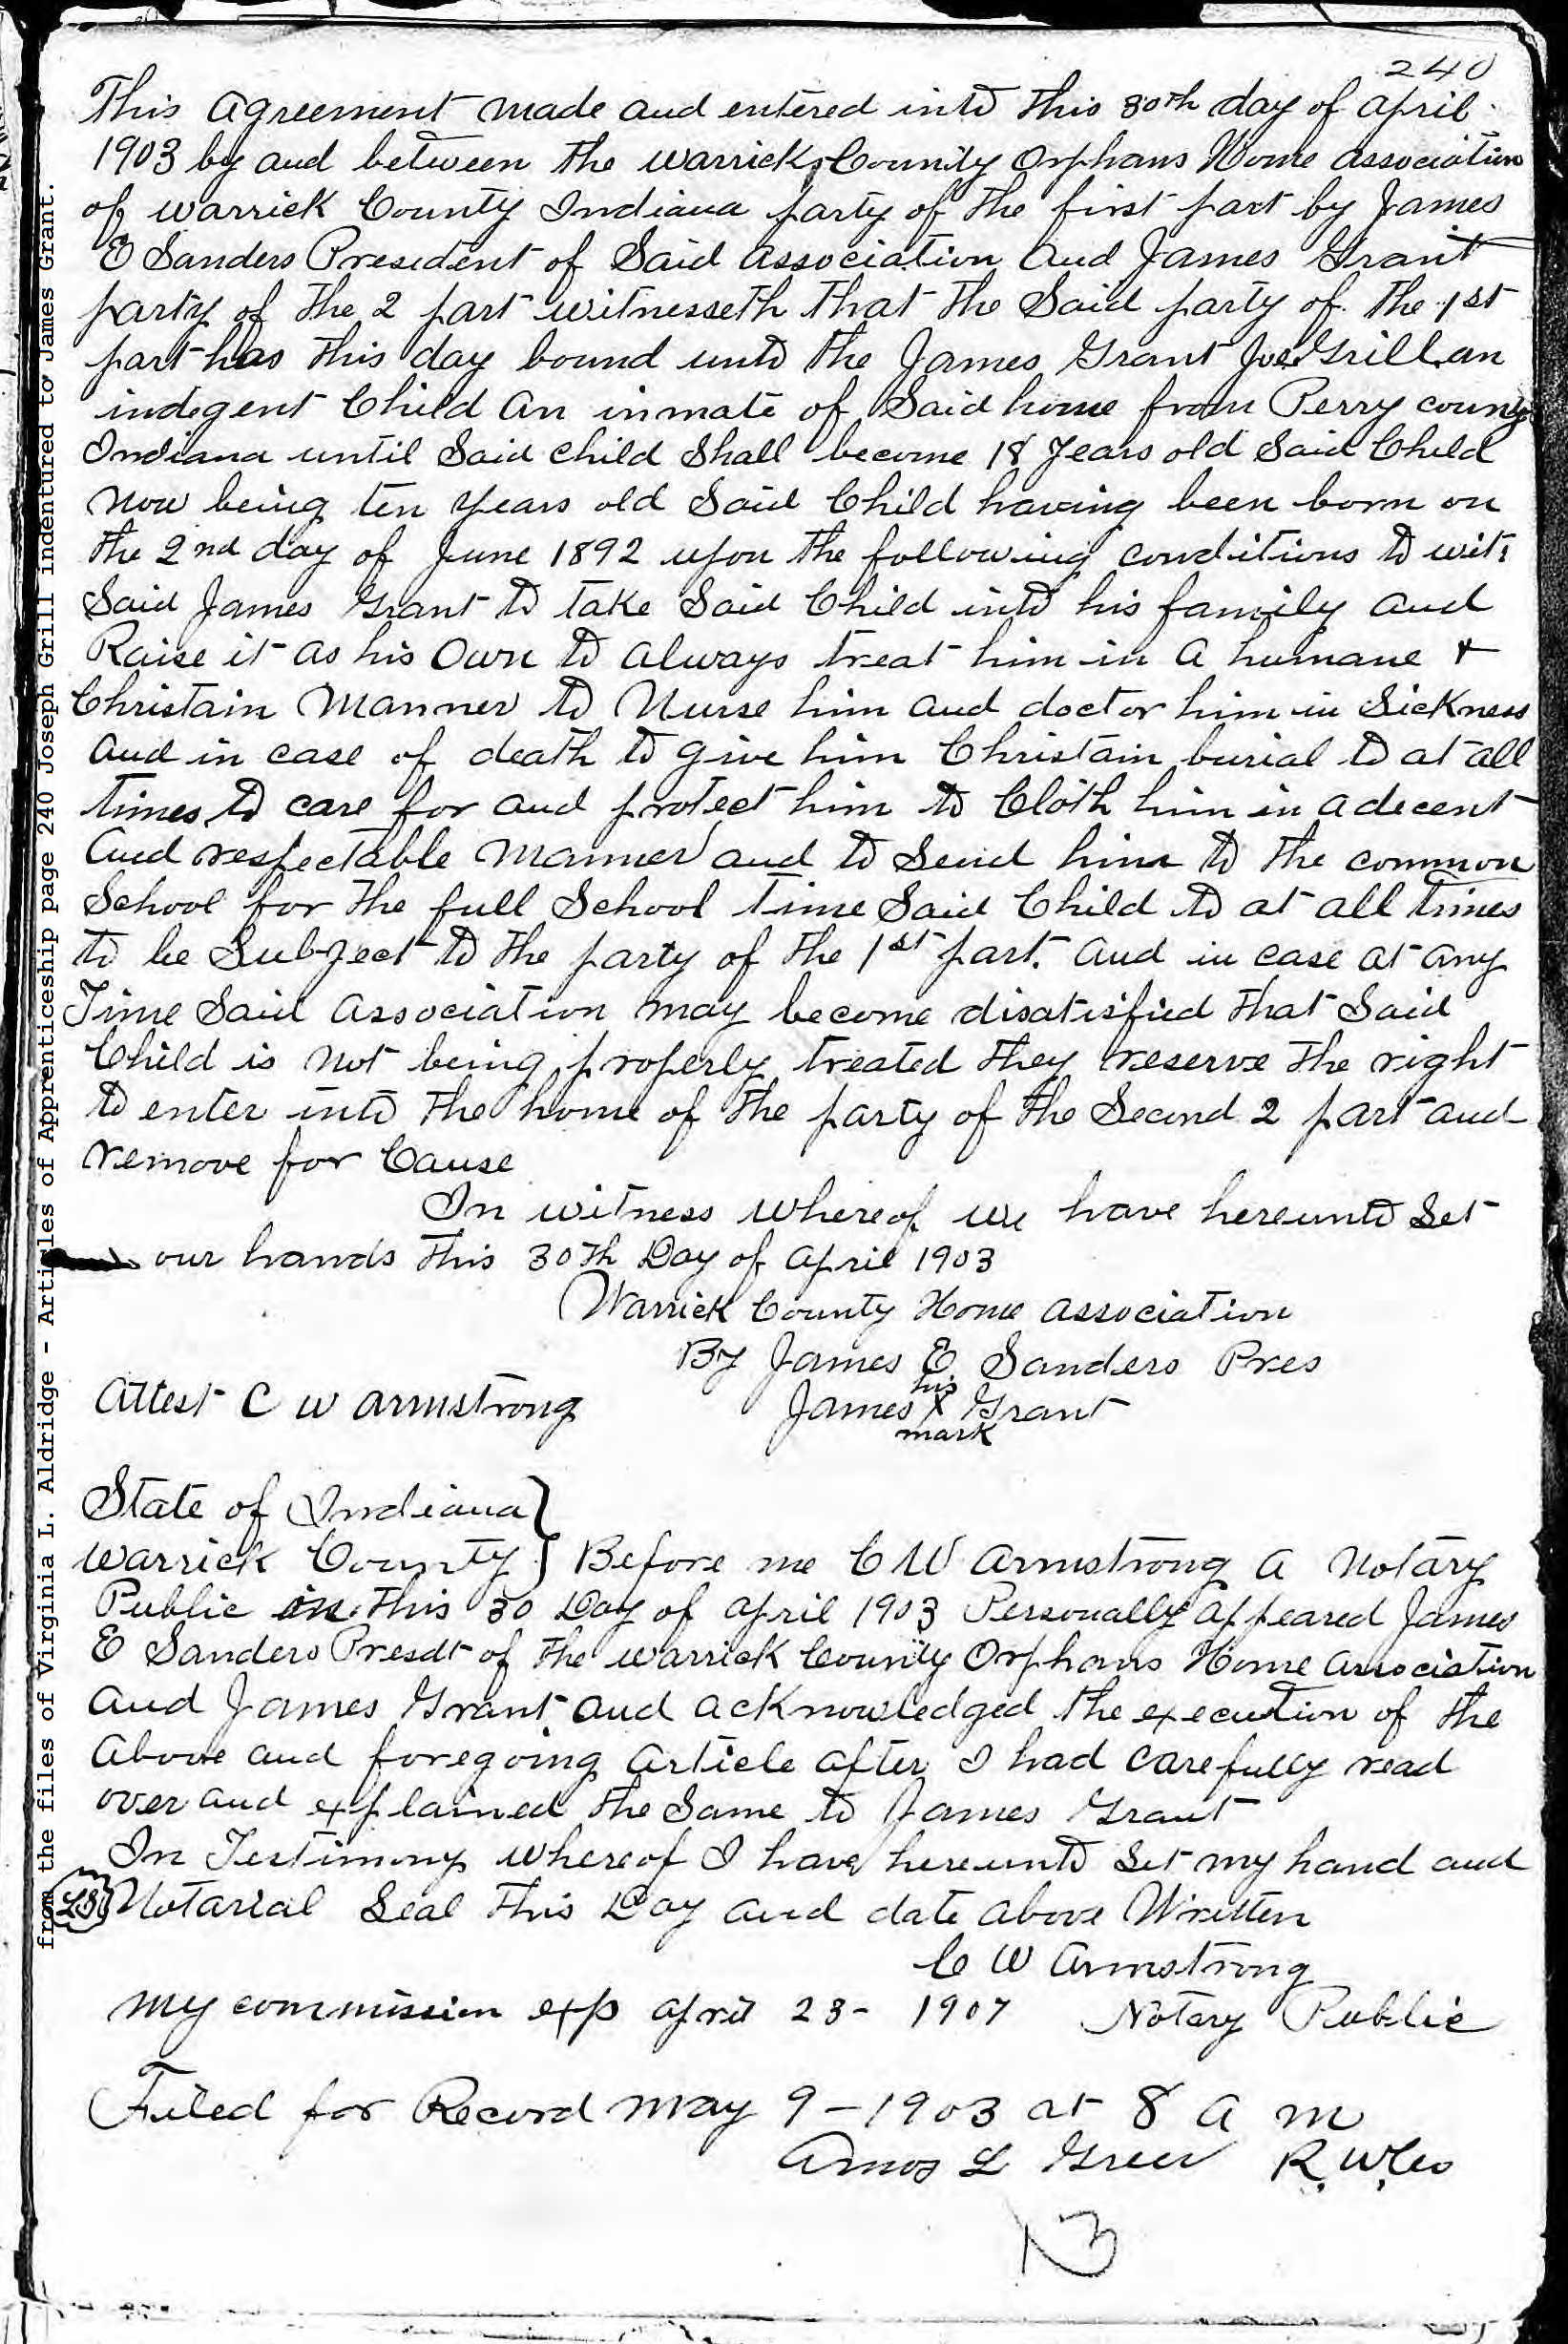 240
This Agreement made and entered into this 30th day of April
1903 by and between the Warrick County Orphans Home Association
of Warrick County Indiana party of the first part by James
E Sanders President of Said Association and James Grant
party of the 2 part witnesseth that the Said party of the 1st
part has this day bound unto the James Grant Joe Grill an
indigent Child an inmate of Said home from Perry county
Indiana until Said child Shall become 18 Years old Said Child
now being ten years old Said Child having been born on
the 2nd day of June 1892 upon the following conditions to wit:
Said James Grant to take Said Child into his family and
Raise it as his Own to always treat him in a humane +
Christain Manner to Nurse him and doctor him in Sickness
and in case of death to give him Christain burial to at all
times to care for and protect him to Cloth him in a decent
and respectable manner and to Send him to the common
School for the full School time Said Child to at all times
to be Subject to the party of the 1st part. and in case at any
Time Said Association may become disatisfied that Said
Child is not being properly treated they reserve the right
to enter into the home of the party of the Second 2 part and
remove for Cause
In witness whereof we have hereunto Set
our hands this 30th Day of April 1903
Warrick County Home Association
By James E. Sanders Pres
his
Attest C W Armstrong James X Grant
mark
State of Indiana }
Warrick County } Before me C W Armstrong a Notary
Public in this 30 Day of April 1903 Personally appeared James
E Sanders Presdt of the Warrick County Orphans Home Association
and James Grant and acknowledged the execution of the
above and foregoing article after I had carefully read
over and explained the Same to James Grant
In Testimony whereof I have hereunto Set my hand and
LS Notarial Seal this Day and date above Written
C W Armstrong
My commission exp April 23- 1907 Notary Public
Filed for Record May 9-1903 at 8 A M
Amos L Greer R.W.Co
from the files of Virginia L. Aldridge - Articles of Apprenticeship page 240 Joseph Grill indentured to James Grant.